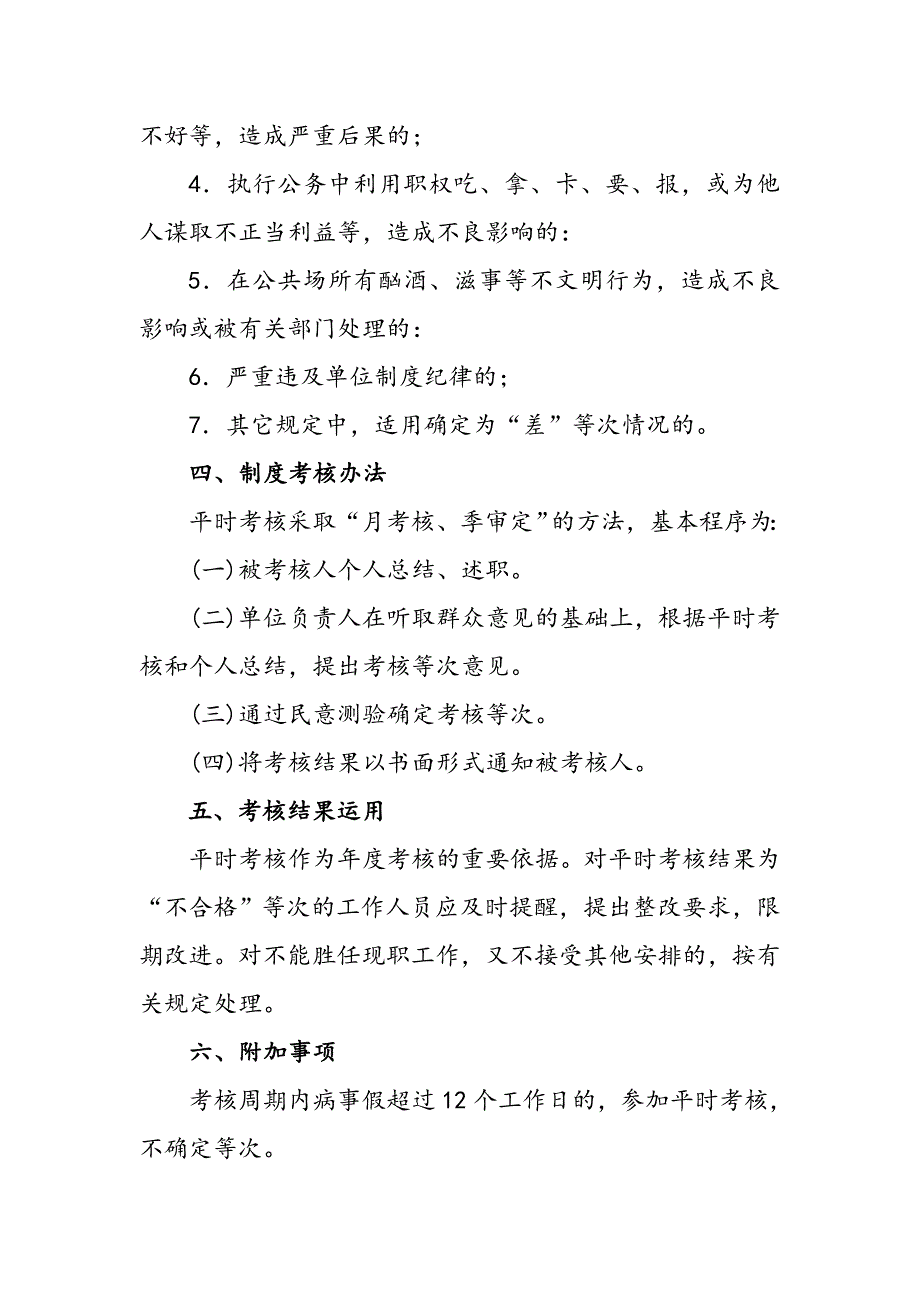 不好等，造成严重后果的；
4．执行公务中利用职权吃、拿、卡、要、报，或为他
人谋取不正当利益等，造成不良影响的：
5．在公共场所有酗酒、滋事等不文明行为，造成不良
影响或被有关部门处理的：
6．严重违及单位制度纪律的；
7．其它规定中，适用确定为“差”等次情况的。
四、制度考核办法
平时考核采取“月考核、季审定”的方法，基本程序为：
(一)被考核人个人总结、述职。
(二)单位负责人在听取群众意见的基础上，根据平时考
核和个人总结，提出考核等次意见。
(三)通过民意测验确定考核等次。
(四)将考核结果以书面形式通知被考核人。
五、考核结果运用
平时考核作为年度考核的重要依据。对平时考核结果为
“不合格”等次的工作人员应及时提醒，提出整改要求，限
期改进。对不能胜任现职工作，又不接受其他安排的，按有
关规定处理。
六、附加事项
考核周期内病事假超过12个工作日的，参加平时考核，
不确定等次。